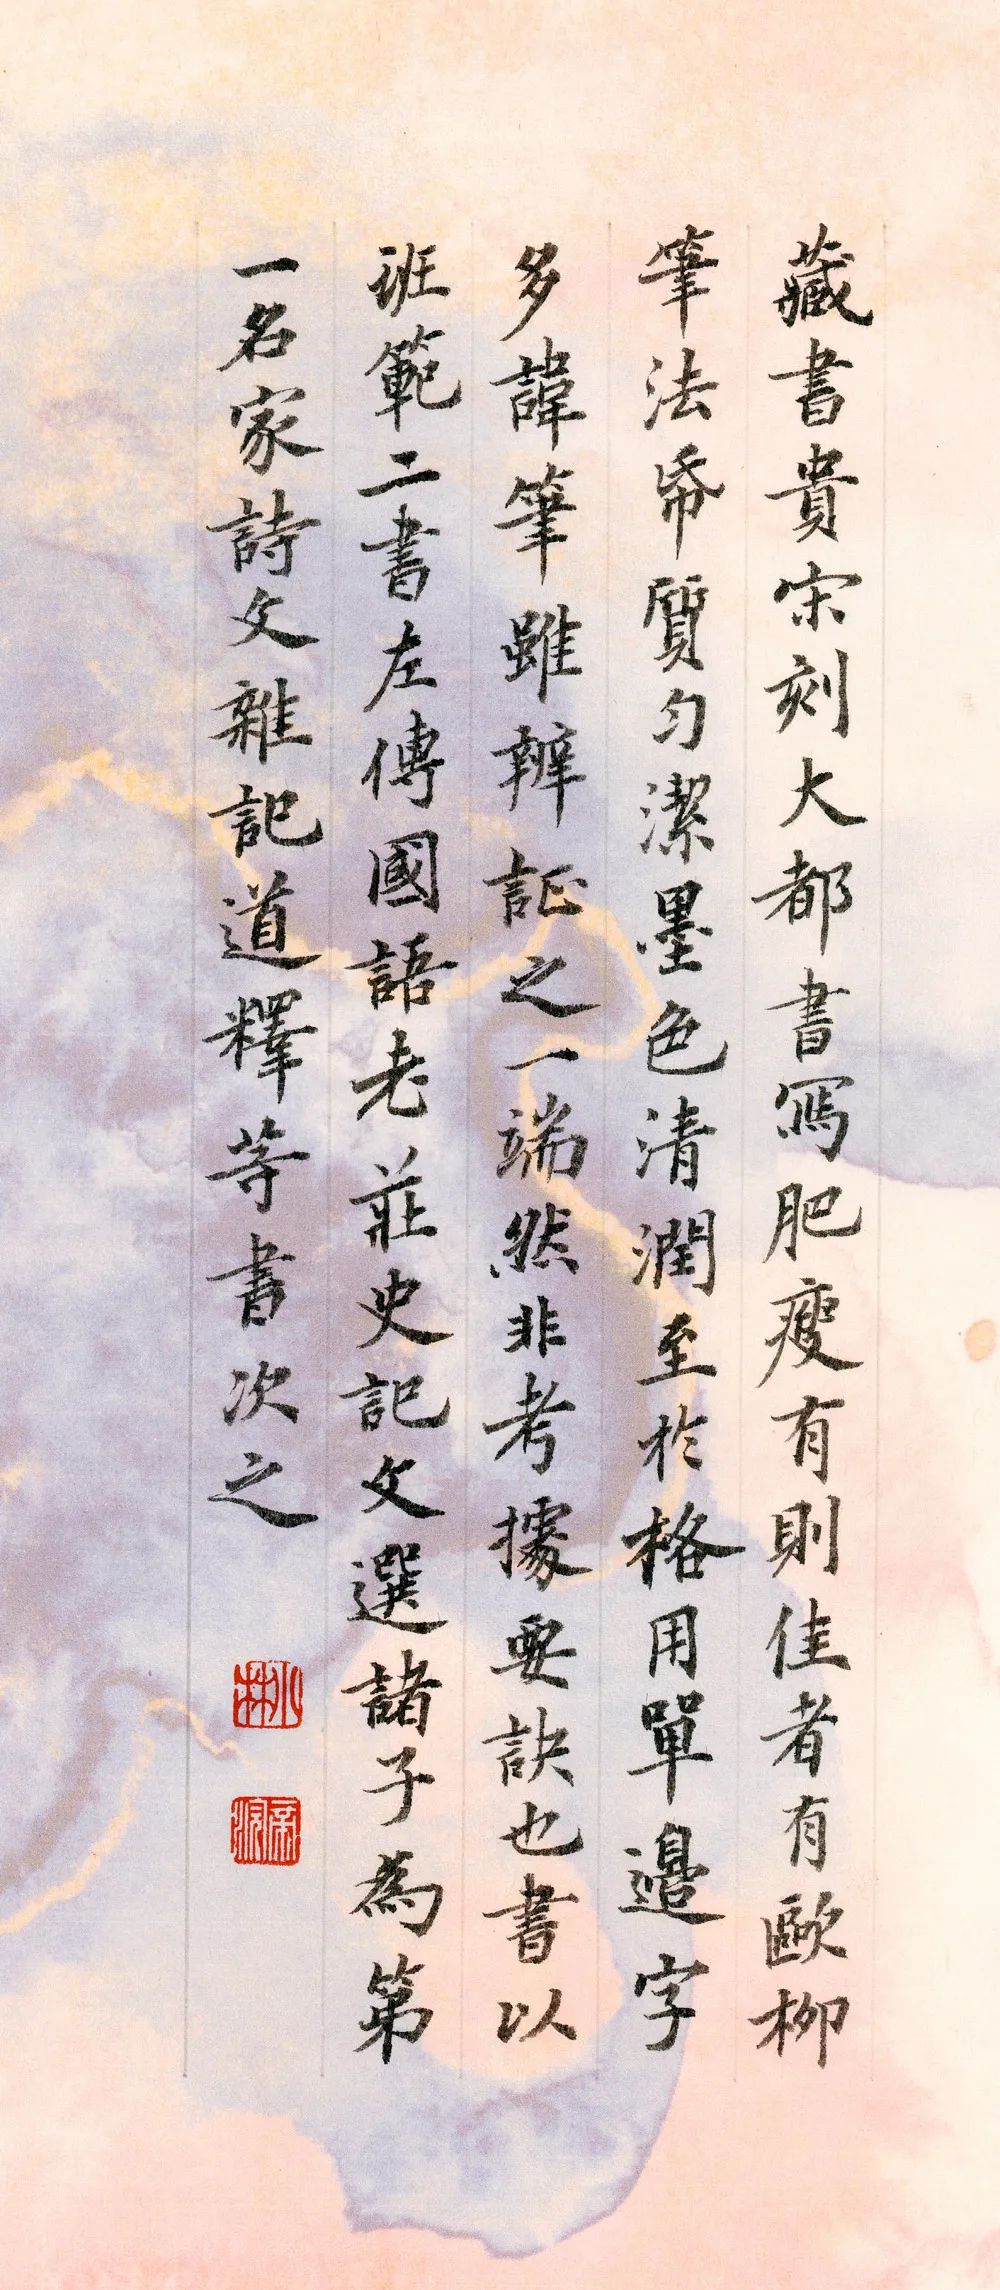 藏書貴宋刻大都書寫肥瘦有則佳者有歐柳
筆法帋質勻潔墨色清潤至於格用單邊字
多諱筆雖辨証之一端然非考據要訣也書以
班範二書左傳國語老莊史記文選諸子為第
一名家詩文雜記道釋等書次之